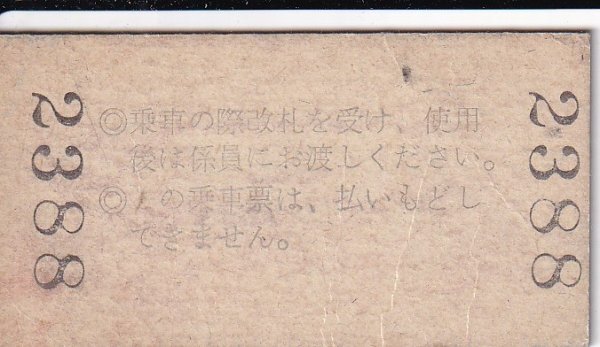 2388
◎乗車の際改札を受け、使用
後は係員にお渡しください。
◎の乗車票は、払いもどし
できません。
2388